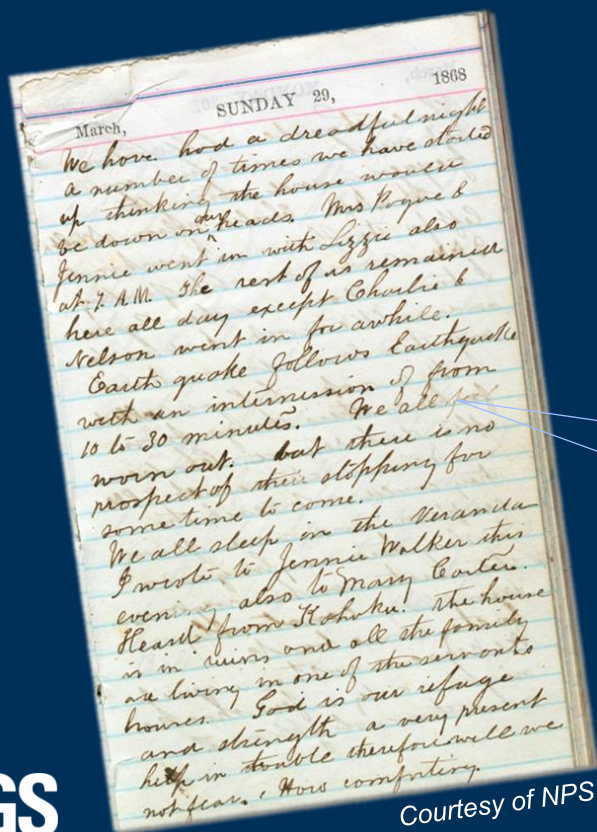 March, SUNDAY 29, 1868
We have had a dreadful night
a number of times we have started
up thinking the house would
be down on our heads. Mrs Pogue &
Jennie went in with Lizzie also
at 7 A.M. The rest of us remained
here all day except Charlie &
Nelson went in for awhile.
Earth quake follows Earthquake
with an intermission of from
10 to 30 minutes. We all feel
worn out. but there is no
prospect of their stopping for
some time to come.
We all sleep in the Veranda
I wrote to Jennie Walker this
evening also to Mary Carter.
Heard from Kahuku. the house
is in ruins and all the family
are living in one of the servants
houses. God is our refuge
and strength a very present
help in trouble therefore will we
not fear. How comforting.
GS
Courtesy of NPS